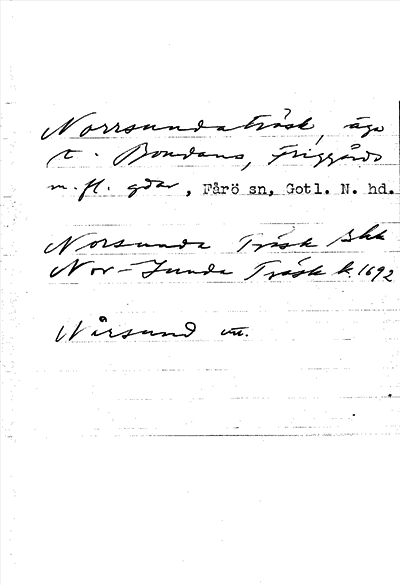 Norrsundaträsk, ägo
t. Bondans, Friggårds
m. fl. gdar, Fårö sn, Gotl. N. hd.
Norsunda Träsk Skk
Nor-Sunda Träsk k. 1692
Nårsund